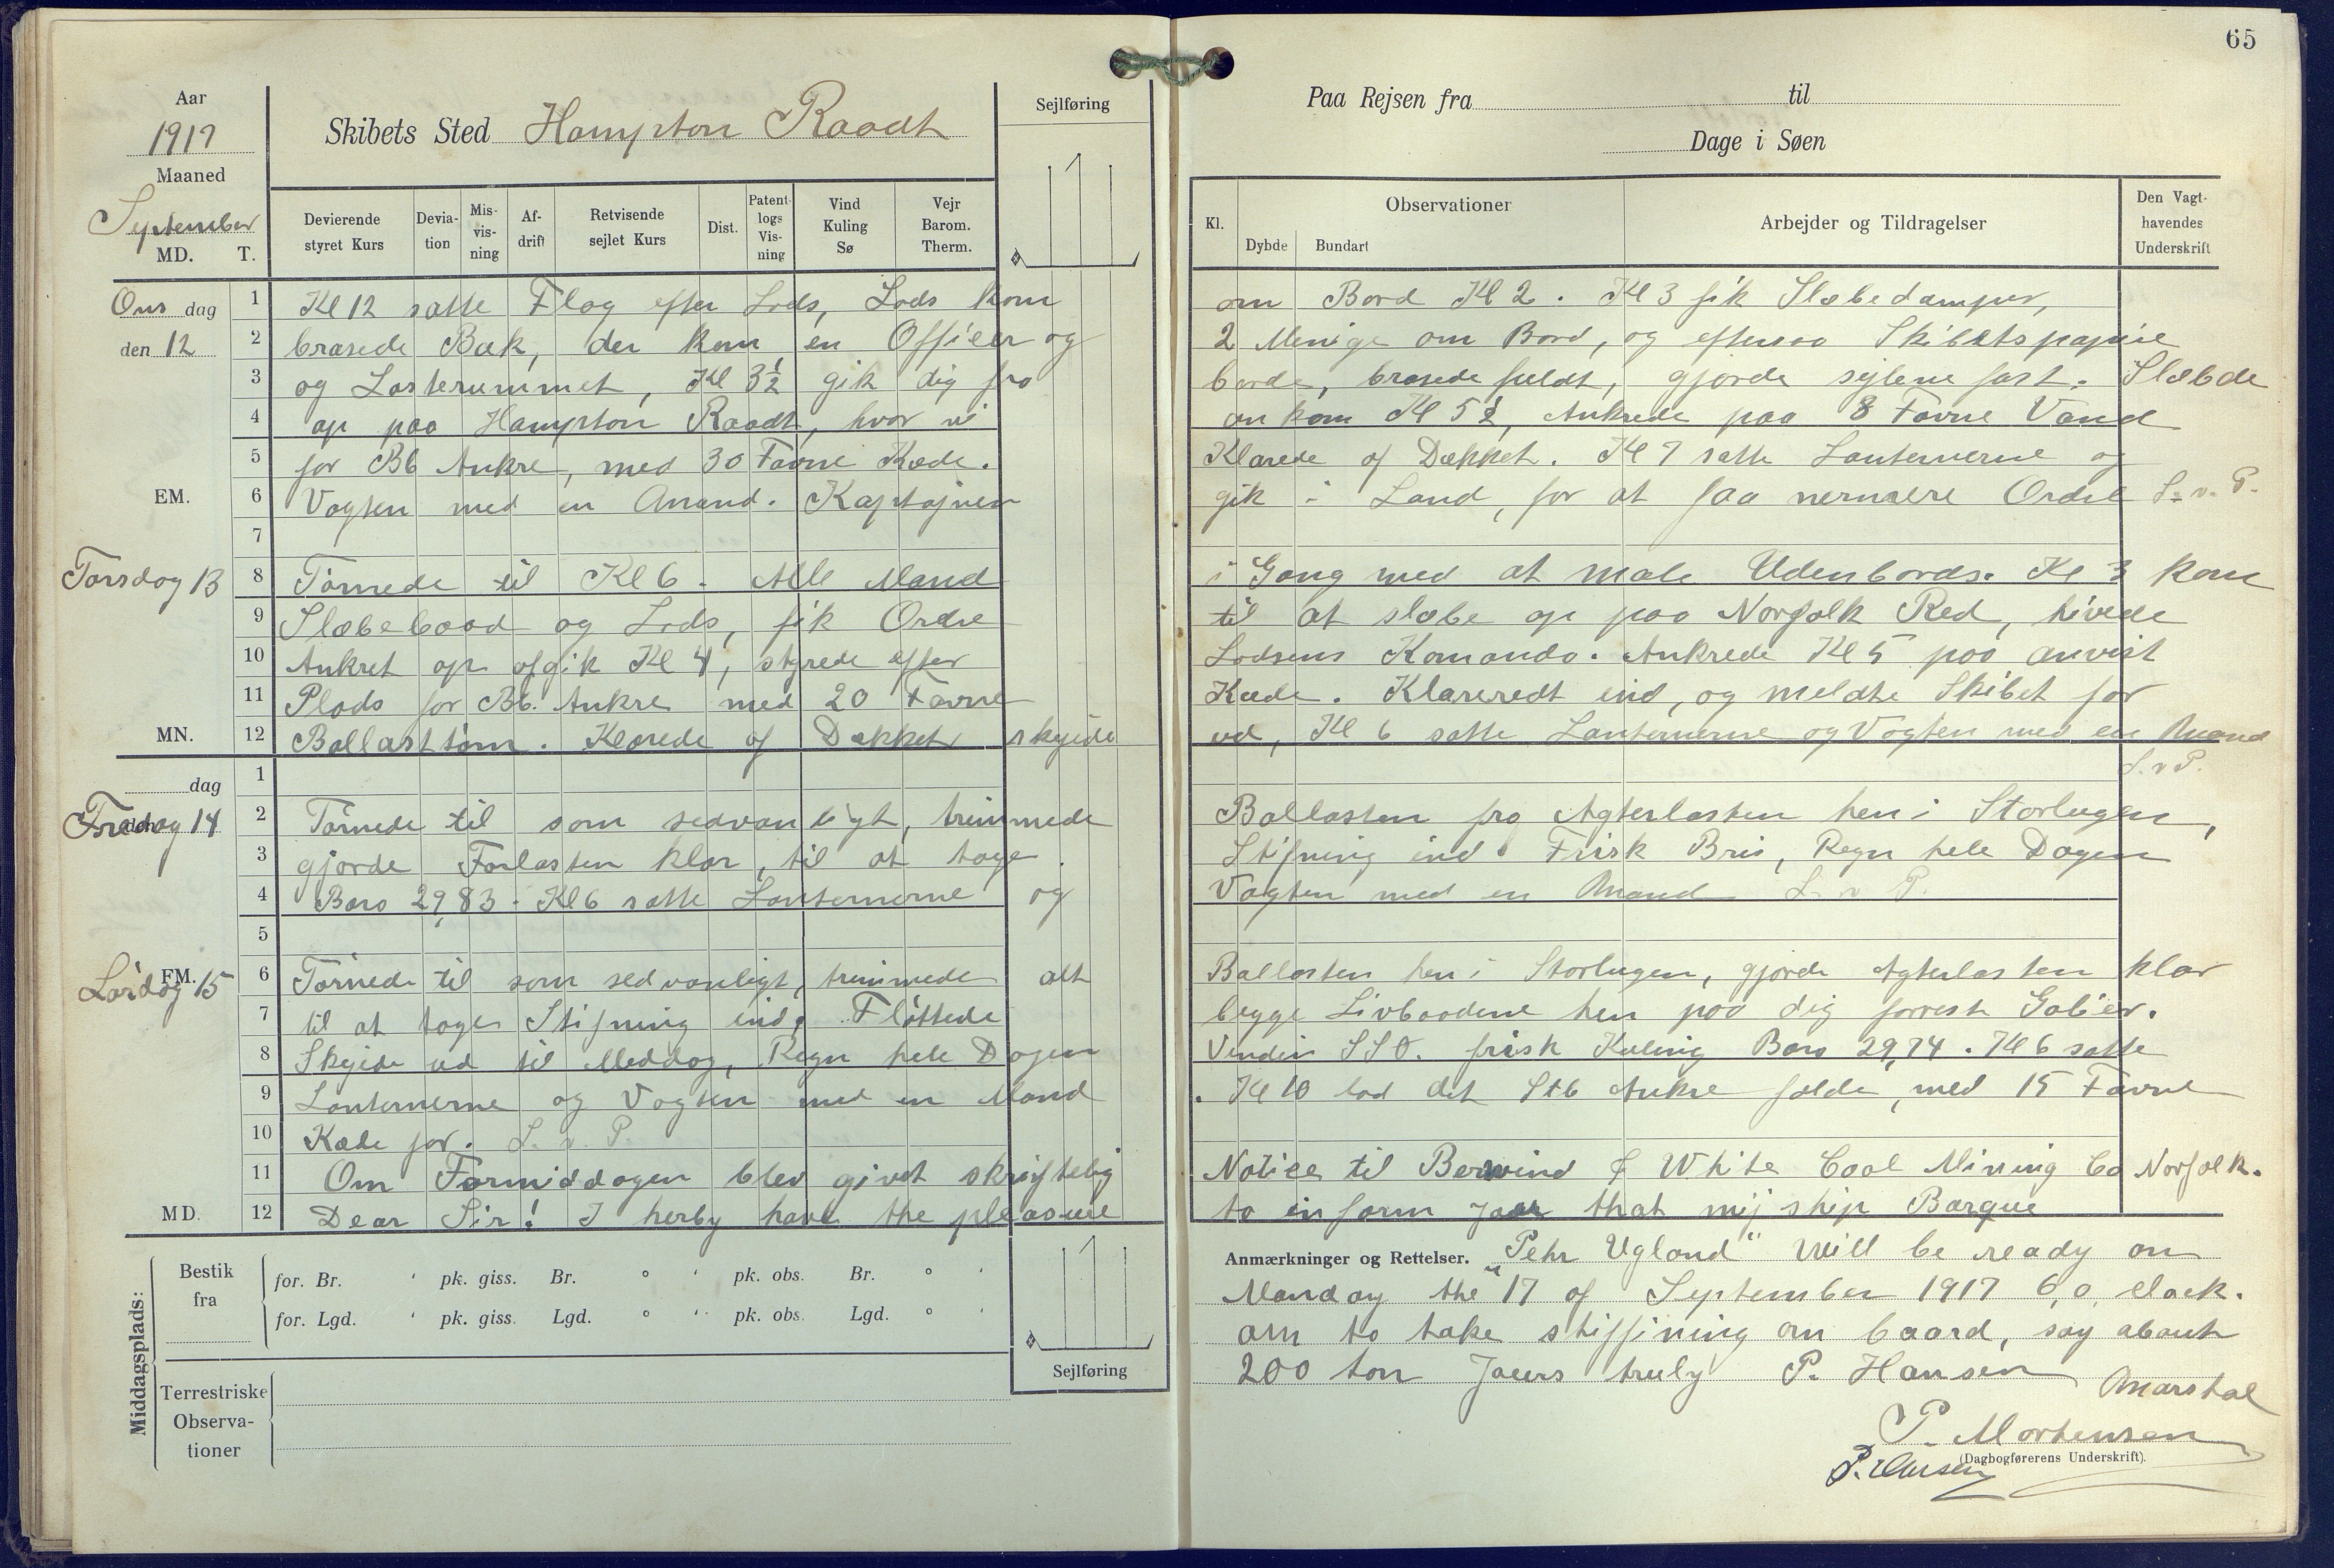 65
Aar
1917
Maaned
September
MD. T.
Skibets Sted Hampton Raadt
Sejlføring
Devierende styret Kurs
Devia-tion
Mis-vis-ning
Af-drift
Retvisende sejlet Kurs
Dist.
Patent-logs Vis-ning
Vind Kuling Sø
Vejr Barom. Therm.
Paa Rejsen fra til
Dage i Søen
Kl.
Observationer
Dybde Bundart
Arbejder og Tildragelser
Den Vagt-havendes Underskrift
Ons dag
den 12
1 Kl 12 satte Flag efter Lods, Lods kom om Bord Kl 2. Kl 3 fik Slæbedamper,
2 brasede Bak, der kom en Officer og 2 Menige om Bord, og eftersaa Skibetspapirie
3 og Lasterummet, Kl 3½ gik dig fra borde, brasede fuldt, gjorde sejlene fast. Slæbde
4 op paa Hampton Raadt, hvor vi ankom Kl 5½, Ankrede paa 8 Favne Vand
5 for Bb Ankre, med 30 Favne Kæde. Klarede af Dækket. Kl 7 satte Lanternerne og
EM. 6 Vagten med en Mand. Kaptajnen gik i Land, for at faa nermere Ordre L. v. P.
7
Torsdag 13
8 Tørnede til Kl 6. Alle Mand i Gang med at male Udenbords. Kl 3 kom
9 Slæbebaad og Lods, fik Ordre til at slæbe op paa Norfolk Red, hivede
10 Ankret op afgik Kl 4, styrede efter Lodsens Komando. Ankrede Kl 5 paa anvist
11 Plads for Bb. Ankre med 20 Favne Kæde. Klareredt ind, og meldte Skibet for
MN. 12 Ballasttøm. Klarede af Dækket skyede ud, Kl 6 satte Lanternerne og Vagten med en Mand
L. v P.
dag
1
den
Fredag 14
2 Tørnede til som sedvanligt, trimmede Ballasten fra Agterlasten hen i Storlugen,
3 gjorde Forlasten klar, til at tage Stifning ind. Frisk Bris, Regn hele Dagen
4 Baro 29,83. Kl 6 satte Lanternerne og Vagten med en Mand L. v P.
5
FM.
Lørdag 15
6 Tørnede til som sedvanligt, trimmede alt Ballasten hen i Storlugen, gjorde Agterlasten klar
7 til at tage Stifning ind. Fløttede begge Livbaadene hen paa dig forrest Galier.
8 Skyede ud til Meddag, Regn hele Dagen Vinden SSO. frisk Kuling Baro 29,74. Kl 6 satte
9 Lanternerne og Vagten med en Mand. Kl 10 lod det Stb Ankre falde, med 15 Favne
10 Kæde for. L. v. P.
11 Om Formiddagen blev givet skriftelig Notice til Berwind & White Coal Mining Co Norfolk.
MD. 12 Dear Sir! I herby have the pleasure to inform jaur that mij ship Barque
Anmærkninger og Rettelser. „Pehr Ugland" Will be ready on
Manday the 17 of September 1917 6,o, clock.
am to take stiffining on baard, say about
200 ton Jaurs truly P. Hansen
Marstal
P. Mortensen
(Dagbogførerens Underskrift).
Middagsplads:
Bestik fra
for. Br. ' pk. giss. Br. ° ' pk. obs. Br. ° '
for. Lgd. ' pk. giss. Lgd. ° ' pk. obs. Lgd. ° '
Sejlføring
Terrestriske Observa-tioner